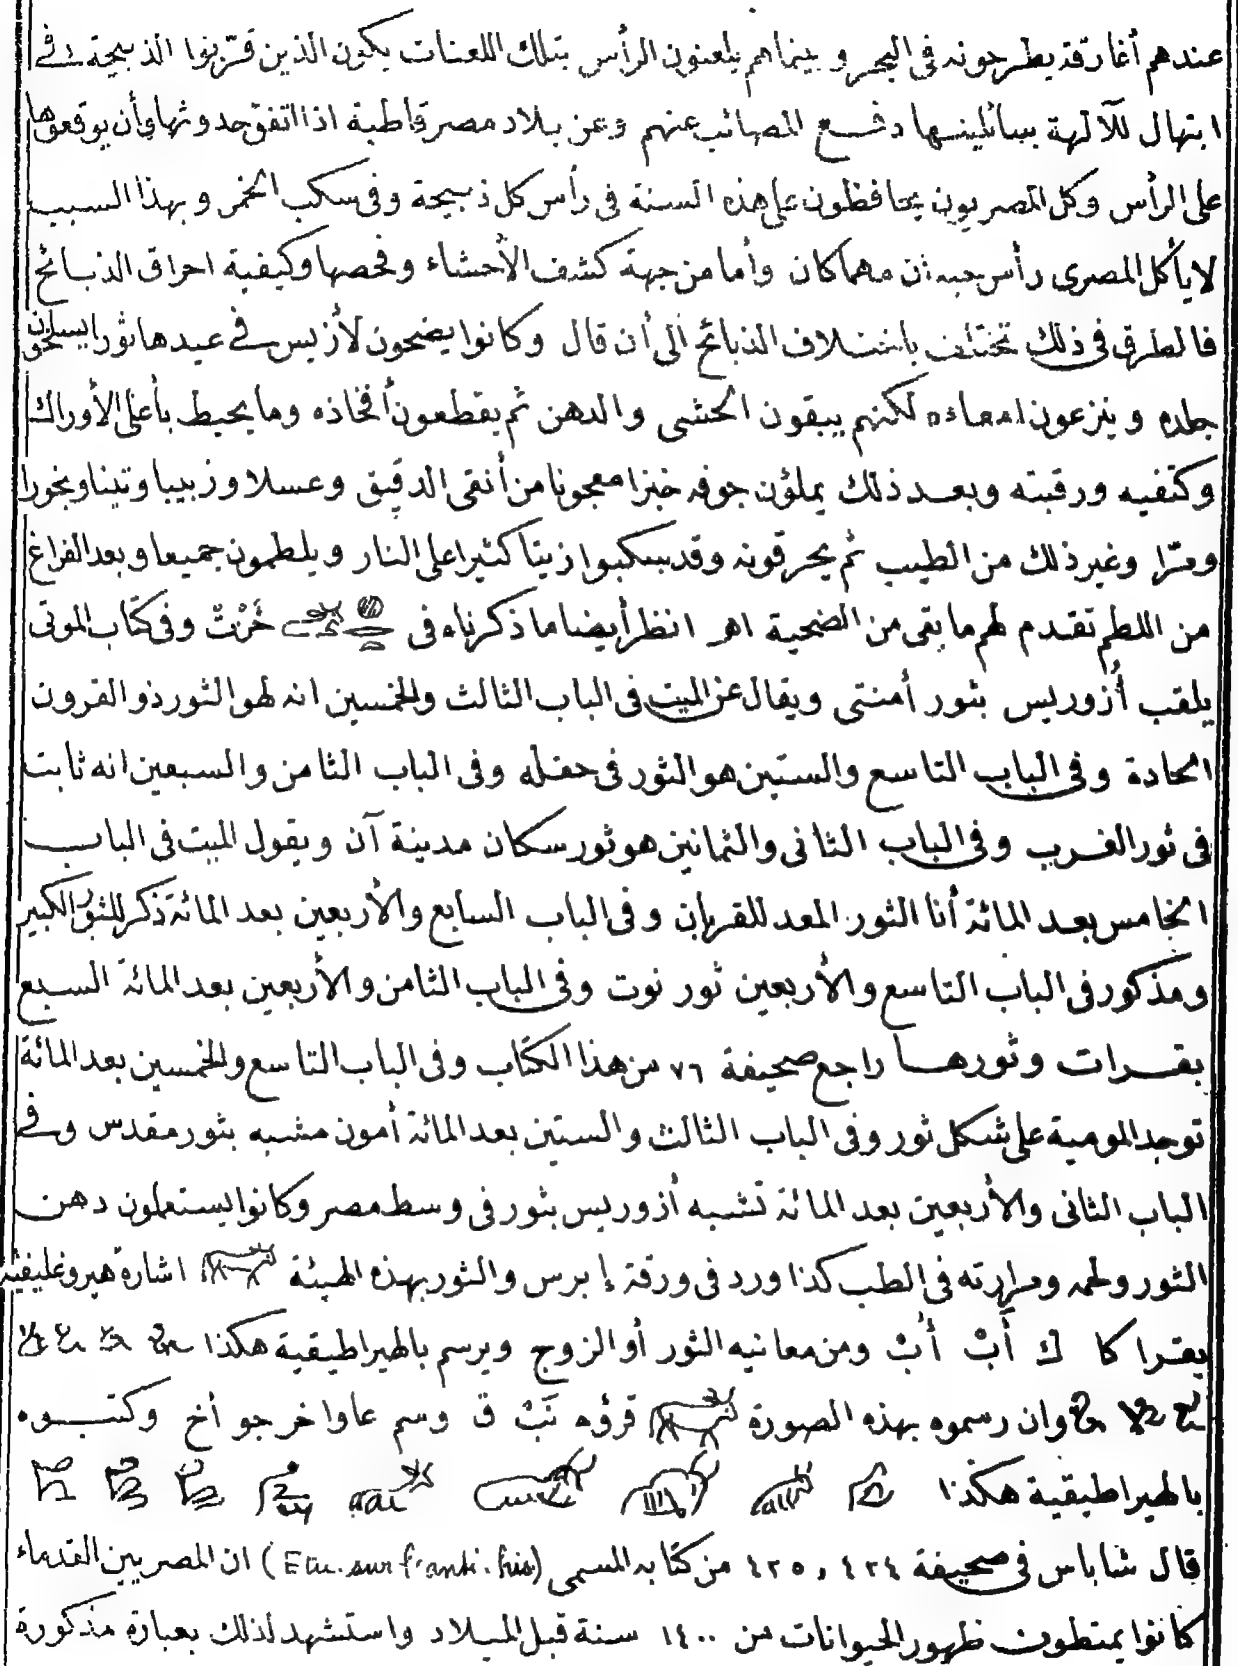 عندهم أغارقة يطرحونه فى البحر وبينما هم يلعنون الرأس بتلك اللعنات يكون الذين قرّبوا الذبيحة فى
ابتهال للآلهة يسائلينها دفع المصائب عنهم وعن بلاد مصر قاطبة اذا اتفق حدوثها وأن يوقعوها
على الرأس وكل المصريون يحافظون على هذه السنة فى رأس كل ذبيحة وفى سكب الخمر وبهذا السبب
لا يأكل المصرى رأس حيوان مهما كان وأما من جهة كشف الأحشاء وفحصها وكيفية احراق الذبائح
فالطرق فى ذلك تختلف باختلاف الذبائح الى أن قال وكانوا يضحون لأزيس فى عيدها ثورا يسلخون
جلده وينزعون امعاءه لكنهم يبقون الحشى والدهن ثم يقطعون أفخاذه وما يحيط بأعلى الأوراك
وكتفيه ورقبته وبعد ذلك يملؤن جوفه خبزا معجونا من أنقى الدقيق وعسلا وزبيبا وتينا وبخورا
ومرّا وغير ذلك من الطيب ثم يحرقونه وقد سكبوا زيتا كثيرا على النار ويلطمون جميعا وبعد الفراغ
من اللطم تقدم لهم ما بقى من الضحية اهـ انظر أيضا ما ذكرناه فى خَرْتْ وفى كتاب الموتى
يلقب أزوريس بثور أمنتى ويقال عن الميت فى الباب الثالث والخمسين انه لهو الثور ذو القرون
الحادة وفى الباب التاسع والستين هو الثور فى حقله وفى الباب الثامن والسبعين انه ثابت
فى ثور الغرب وفى الباب الثانى والثمانين هو ثور سكان مدينة آن ويقول الميت فى الباب
الخامس بعد المائة أنا الثور المعد للقربان وفى الباب السابع والأربعين بعد المائة ذكر للثور الكبير
ومذكور فى الباب التاسع والأربعين ثور نوت وفى الباب الثامن والأربعين بعد المائة السبع
بقرات وثورها راجع صحيفة ٧٦ من هذا الكتاب وفى الباب التاسع والخمسين بعد المائة
توجد المومية على شكل ثور وفى الباب الثالث والستين بعد المائة أمون مشبه بثور مقدس وفى
الباب الثانى والأربعين بعد المائة تشبه أزوريس بثور فى وسط مصر وكانوا يستعملون دهن
الثور ولحمه ومرارته فى الطب كذا ورد فى ورقة إبرس والثور بهذه الهيئة اشارة هيروغليفية
يقرا كا ك أَبْ أُبْ ومن معانيه الثور أو الزوج ويرسم بالهيراطيقية هكذا
وان رسموه بهذه الصورة قرؤه نَبْ ق وسم عاوا خر جو أخ وكتبوه
بالهيراطيقية هكذا
قال شاباس فى صحيفة ٤٢٤ , ٤٢٥ من كتابه المسمى (Etu. sur f'anti. his) ان المصريين القدماء
كانوا يمتطون ظهور الحيوانات من ١٤٠٠ سنة قبل الميلاد واستشهد لذلك بعبارة مذكورة